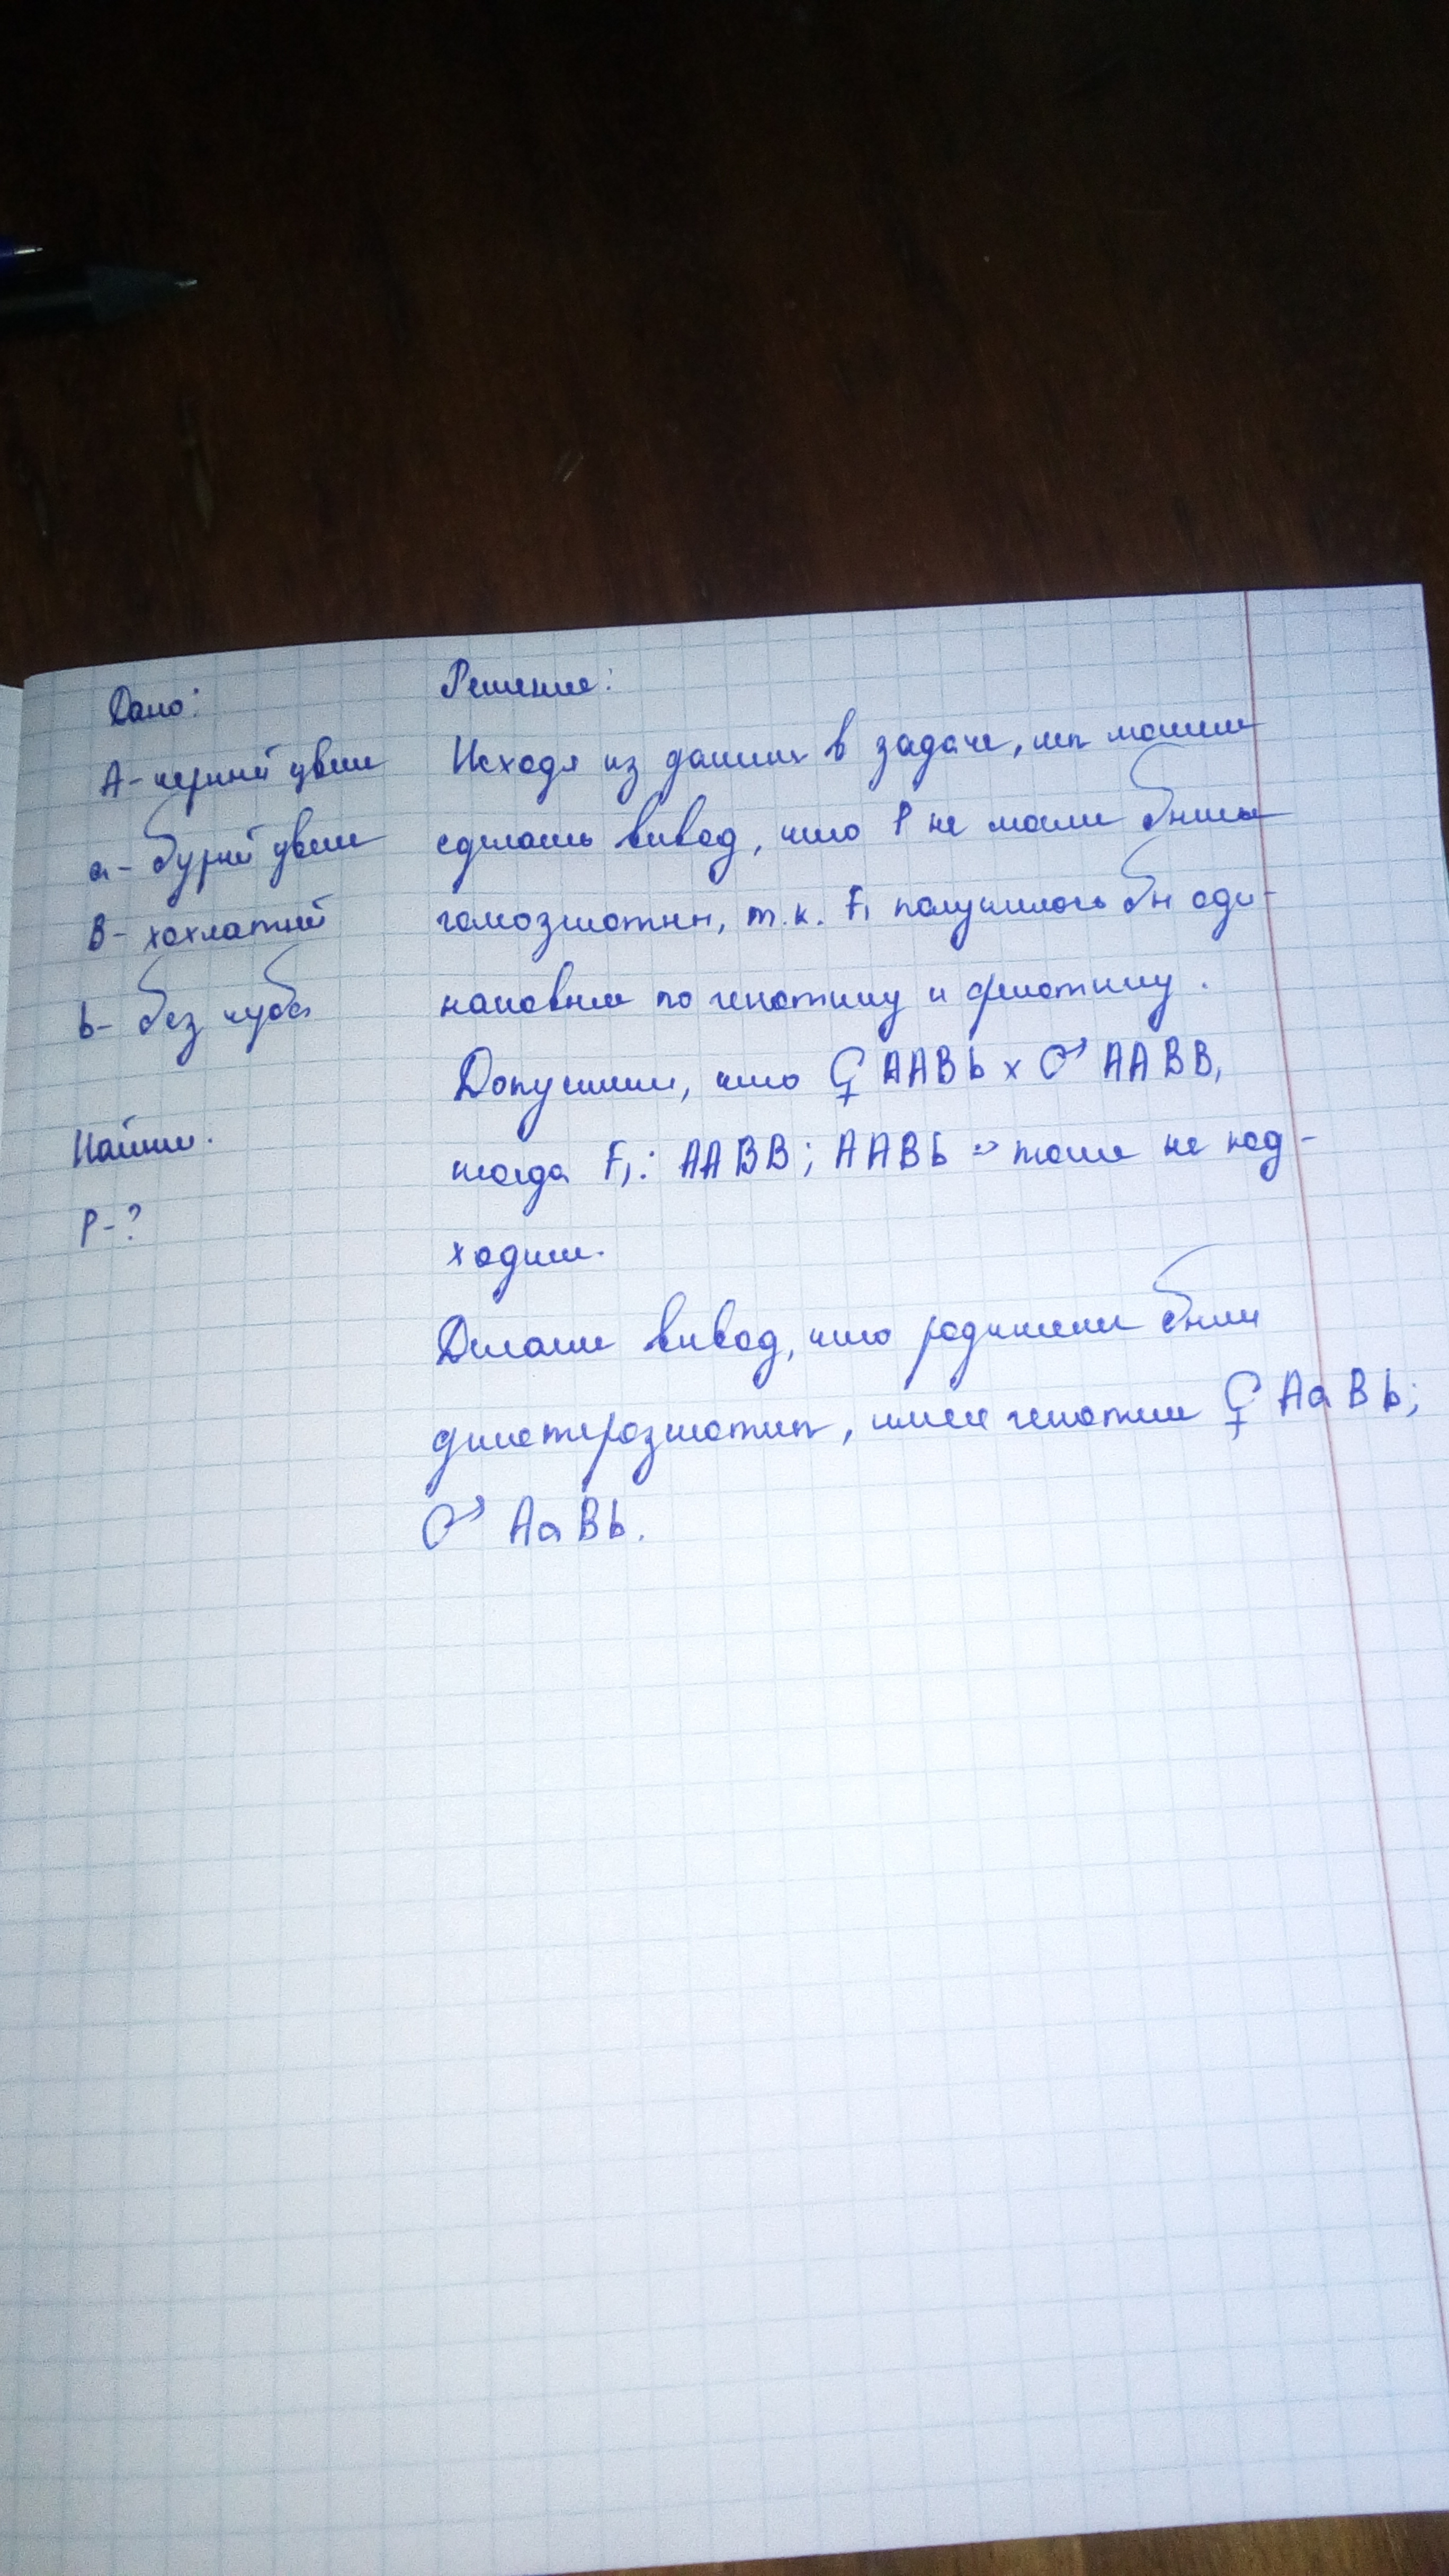 Дано:
А - черный цвет
а - бурый цвет
В - хохлатый
b - без чуба
Найти.
Р - ?
Решение:
Исходя из данных в задаче, мы можем
сделать вывод, что Р не могли быть
гомозиготны, т.к. F₁ получилось бы оди-
наковым по генотипу и фенотипу.
Допустим, что ♀ ААВb х ♂ ААВВ,
тогда F₁: ААВВ; ААВb => тоже не под-
ходит.
Делаем вывод, что родители были
дигетерозиготны, имея генотип ♀ АаВb;
♂ АаВb.